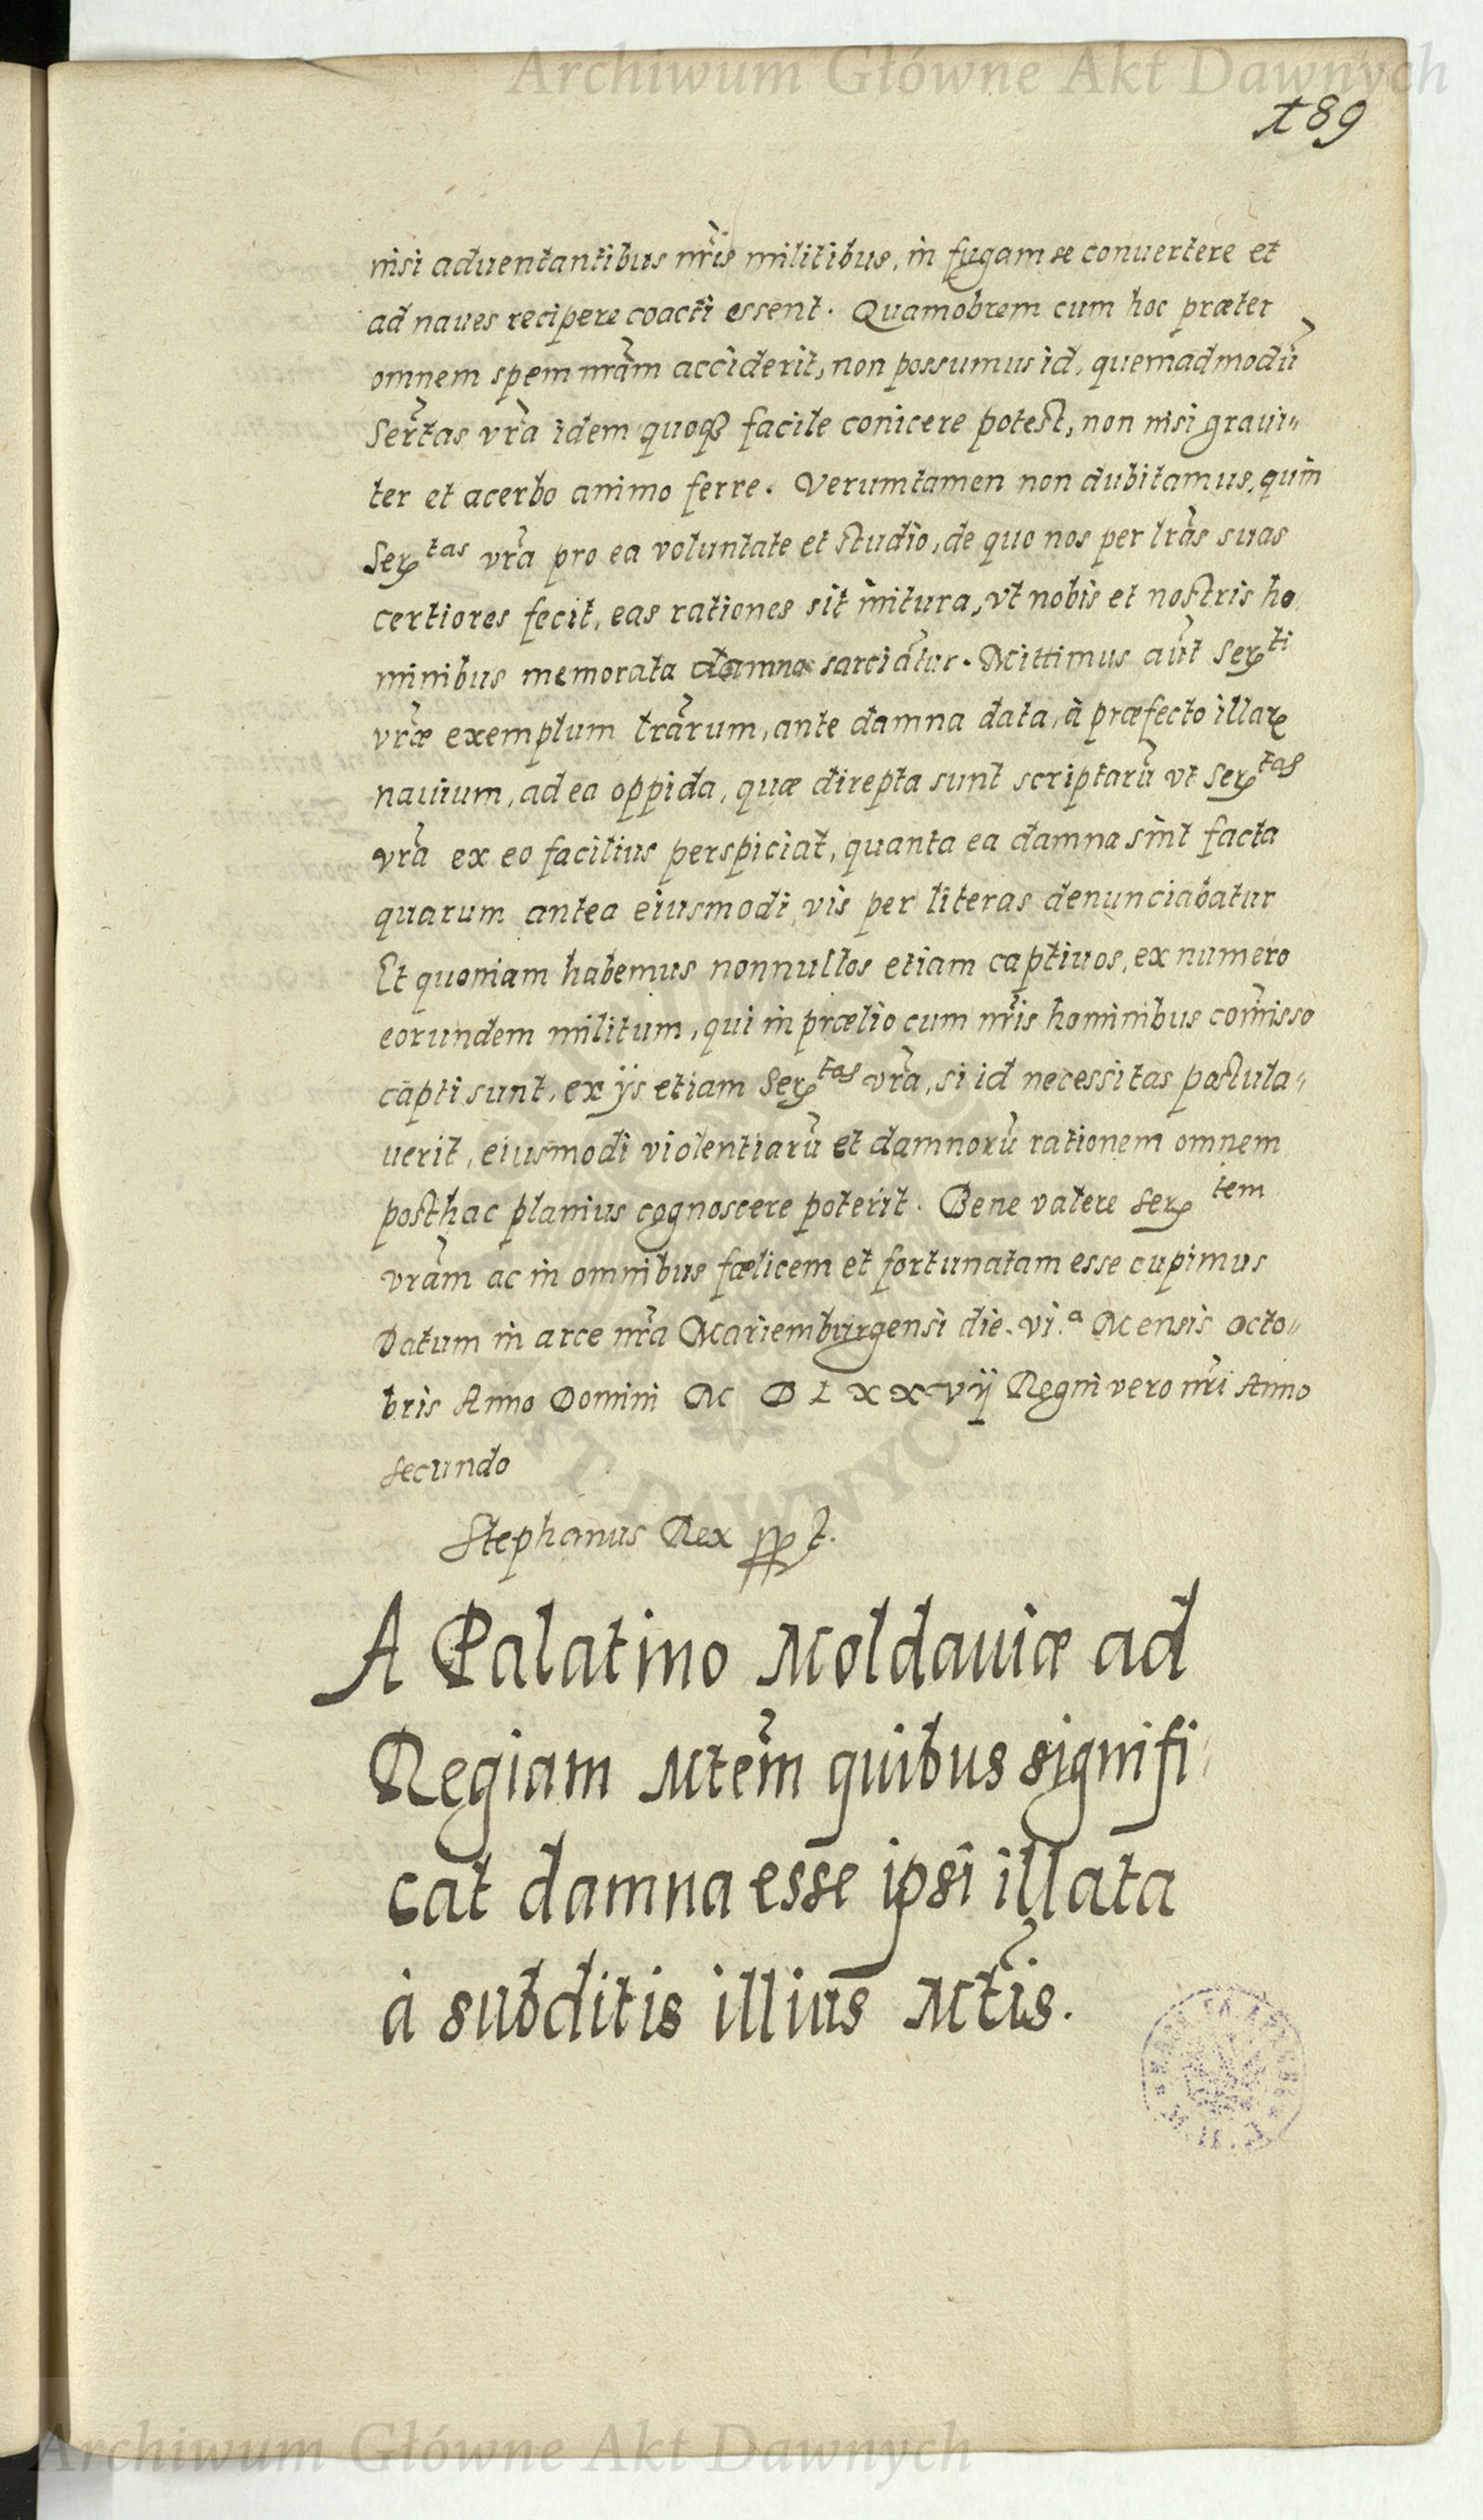 Archiwum Główne Akt Dawnych
189
nisi aduentantibus nr̃is militibus, in fugam se conuertere et
ad naues recipere coacti essent. Quamobrem cum hoc præter
omnem spem nr̃am acciderit, non possumus id, quemadmodũ
Serr̃tas vr̃a idem quoqꝫ facile conicere potest, non nisi graui„
ter et acerbo animo ferre. Verumtamen non dubitamus, quin
Ser^tas vr̃a pro ea voluntate et studio, de quo nos per lr̃as suas
certiores fecit, eas rationes sit initura, vt nobis et nostris ho
minibus memorata damna sarciãtur. Mittimus aũt Ser^ti
vr̃æ exemplum lr̃arum, ante damna data, à præfecto illarꝫ
nauium, ad ea oppida, quæ direpta sunt scriptarũ vt Ser^tas
vr̃a ex eo facilius perspiciat, quanta ea damna sint facta
quarum antea eiusmodi vis per literas denunciabatur
Et quoniam habemus nonnullos etiam captiuos, ex numero
eorundem militum, qui in prælio cum nr̃is hominibus com̃isso
capti sunt, ex ijs etiam Ser^tas vr̃a, si id necessitas postula„
uerit, eiusmodi violentiarũ et damnorũ rationem omnem
posthac planius cognoscere poterit. Bene valere Ser^tem
vr̃am ac in omnibus fælicem et fortunatam esse cupimus
Datum in arce nr̃a Mariemburgensi die. vi.^a Mensis octo„
bris Anno Domini M D L x x vij Regni vero nr̃i Anno
secundo
Stephanus Rex ppt.
A Palatino Moldauiæ ad
Regiam Mtem̃ quibus signifi
cat damna esse ipsi illata
à subditis illius Mtĩs.
Archiwum Główne Akt Dawnych